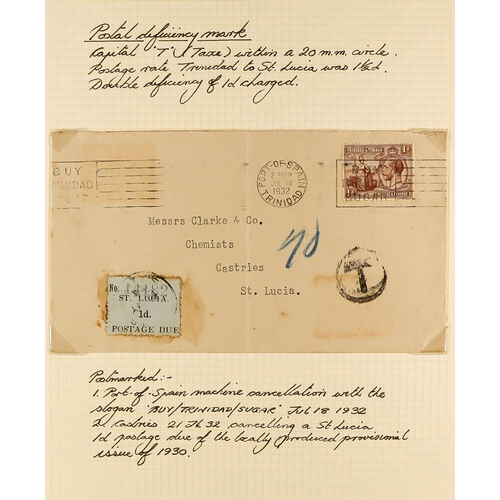 Postal deficiency mark
Capital "T" (Taxe) within a 20 m.m. circle.
Postage rate Trinidad to St. Lucia was 1½d.
Double deficiency of 1d charged.
BUY
PORT-OF-SPAIN
JUL 18
1932
TRINIDAD
1d
Messrs Clarke & Co.
Chemists
Castries
St. Lucia.
T
No.
ST. LUCIA.
1d.
POSTAGE DUE
Postmarked:-
1. Port-of-Spain machine cancellation with the
slogan "BUY/TRINIDAD/SUGAR" JUL 18 1932
2. Castries 21 JY 32 cancelling a St Lucia
1d postage due of the locally produced provisional
issue of 1930.